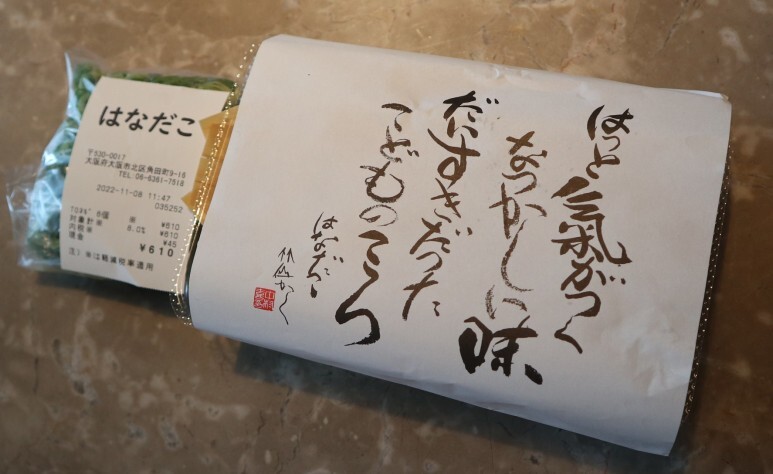 はなだこ
〒530-0017
大阪府大阪市北区角田町9-16
TEL 06-6361-7518
2022-11-08 11:47
035252
ﾌﾛﾈｷﾞ 8個 ※ ¥610
対象計※ 8.0% ¥610
内税※ ¥45
現金 ¥610
注)※は軽減税率適用
はっと
氣がつく
なつかしい味
だいすきだった
こどものころ
はなだこ